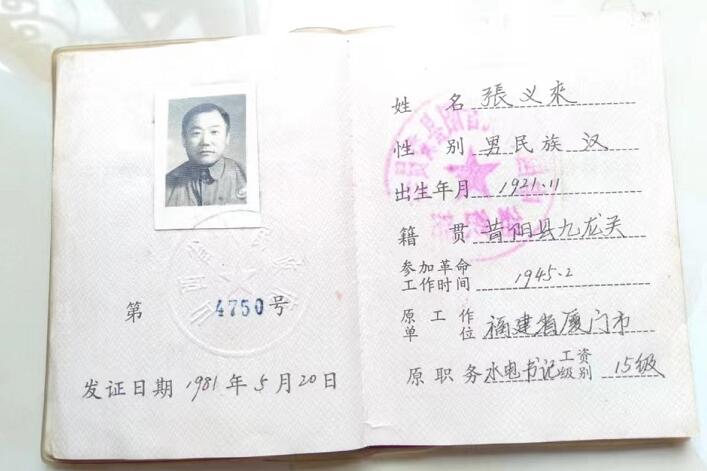 第 4750 号
发证日期 1981 年 5 月 20 日
姓名 張义來
性别 男 民族 汉
出生年月 1921.11
籍贯 昔阳县九龙关
参加革命工作时间 1945.2
原工作单位 福建省厦门市
原职务 水电书记 工资级别 15级